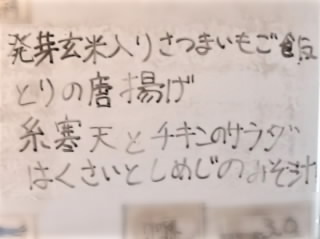 発芽玄米入りさつまいもご飯
とりの唐揚げ
糸寒天とチキンのサラダ
はくさいとしめじのみそ汁